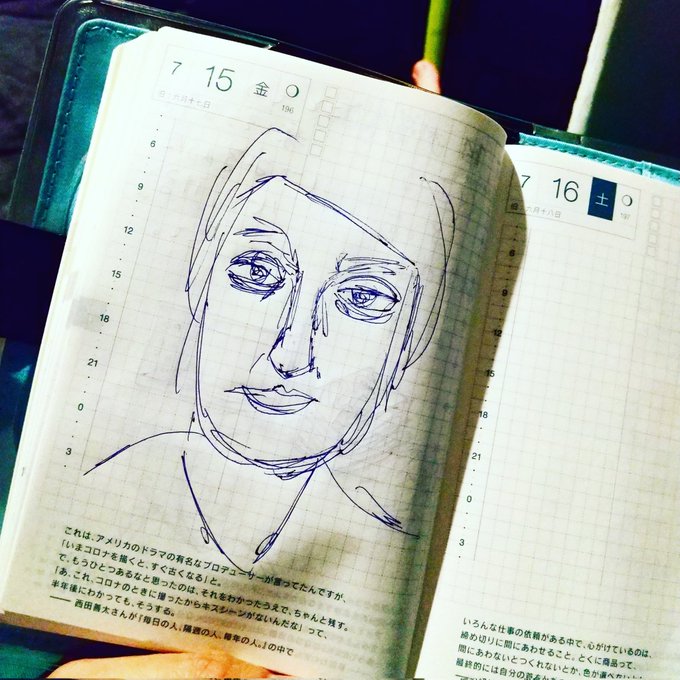 7 15 金
196
旧・六月十七日
6
9
12
15
18
21
0
3
これは、アメリカのドラマの有名なプロデューサーが言ってたんですが、
「いまコロナを描くと、すぐ古くなる」と。
で、もうひとつあるなと思ったのは、それをわかったうえで、ちゃんと残す。
「あ、これ、コロナのときに撮ったからキスシーンがないんだな」って、
半年後にわかっても、そうする。
── 西田善太さんが『毎日の人、隔週の人、毎年の人。』の中で
7 16 土
197
旧・六月十八日
6
9
12
15
18
21
0
3
いろんな仕事の依頼がある中で、心がけているのは、
締め切りに間にあわせること。とくに商品って、
間にあわないとつくれないとか、色が選べない
最終的には自分の首を